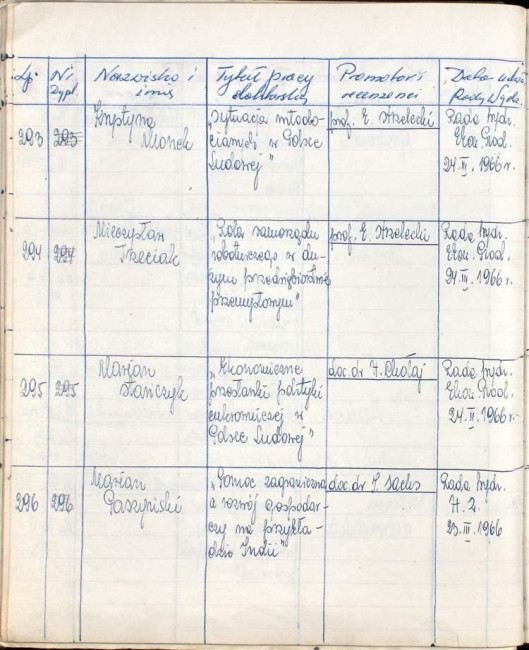 Lp. Nr dypl. Nazwisko i imię Tytuł pracy doktorskiej Promotor i recenzenci Data uchw. Rady Wydz.
293 293 Krystyna Wlonek
"Sytuacja młodo-
cianych w Polsce
Ludowej"
prof. E. Strzelecki
Rada Wydz.
Ekon. Prod.
24.II.1966 r.
294 294 Mieczysław
Trzeciak
"Rola samorządu
robotniczego w du-
żym przedsiębiorstwie
przemysłowym"
prof. E. Strzelecki
Rada Wydz.
Ekon. Prod.
24.III.1966 r.
295 295 Marian
Stańczyk
"Ekonomiczne
przesłanki polityki
cukrowniczej w
Polsce Ludowej"
doc. dr H. Chołaj
Rada Wydz.
Ekon. Prod.
24.II.1966 r.
296 296 Marian
Paszyński
"Pomoc zagraniczna
a rozwój gospodar-
czy na przykła-
dzie Indii"
doc. dr I. Sachs
Rada Wydz.
H.Z.
23.III.1966